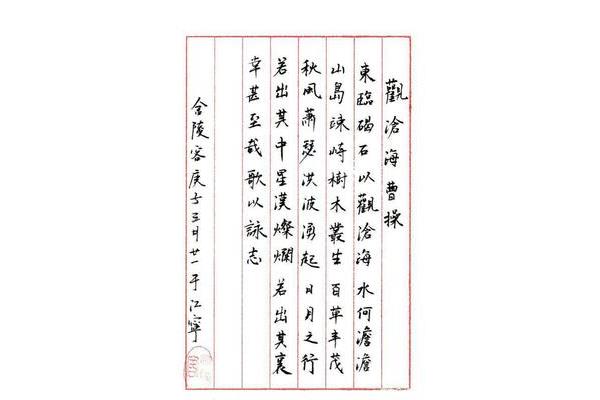 觀滄海曹操
東臨碣石以觀滄海水何澹澹
山島竦峙樹木叢生百草丰茂
秋風蕭瑟洪波湧起日月之行
若出其中星漢燦爛若出其裏
幸甚至哉歌以詠志
金陵客庚子三月廿一于江寧